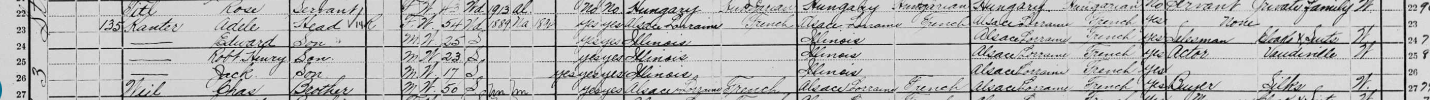 22 Rose Servant F W Wd 1913 Al. No No Hungary Hungarian Hungary Hungarian Hungary Hungarian Servant Private Family W. 22
23 135 Kanter Adele Head R F W 54 Wd 1889 Na yes yes Alsace Lorraine French Alsace Lorraine French Alsace Lorraine French yes None 23
24 — Edward Son M W 25 S yes yes Illinois Illinois Alsace Lorraine French yes Salesman Cloaks & Suits W 24 7
25 — Robt Henry Son M W 23 S yes yes Illinois Illinois Alsace Lorraine French yes Actor Vaudeville W 25 8
26 — Jack Son M W 17 S yes yes yes Illinois Illinois Alsace Lorraine French yes 26
27 Neil Chas Brother M W 50 S yes yes Alsace Lorraine French Alsace Lorraine French Alsace Lorraine French yes Buyer Silks W. 27